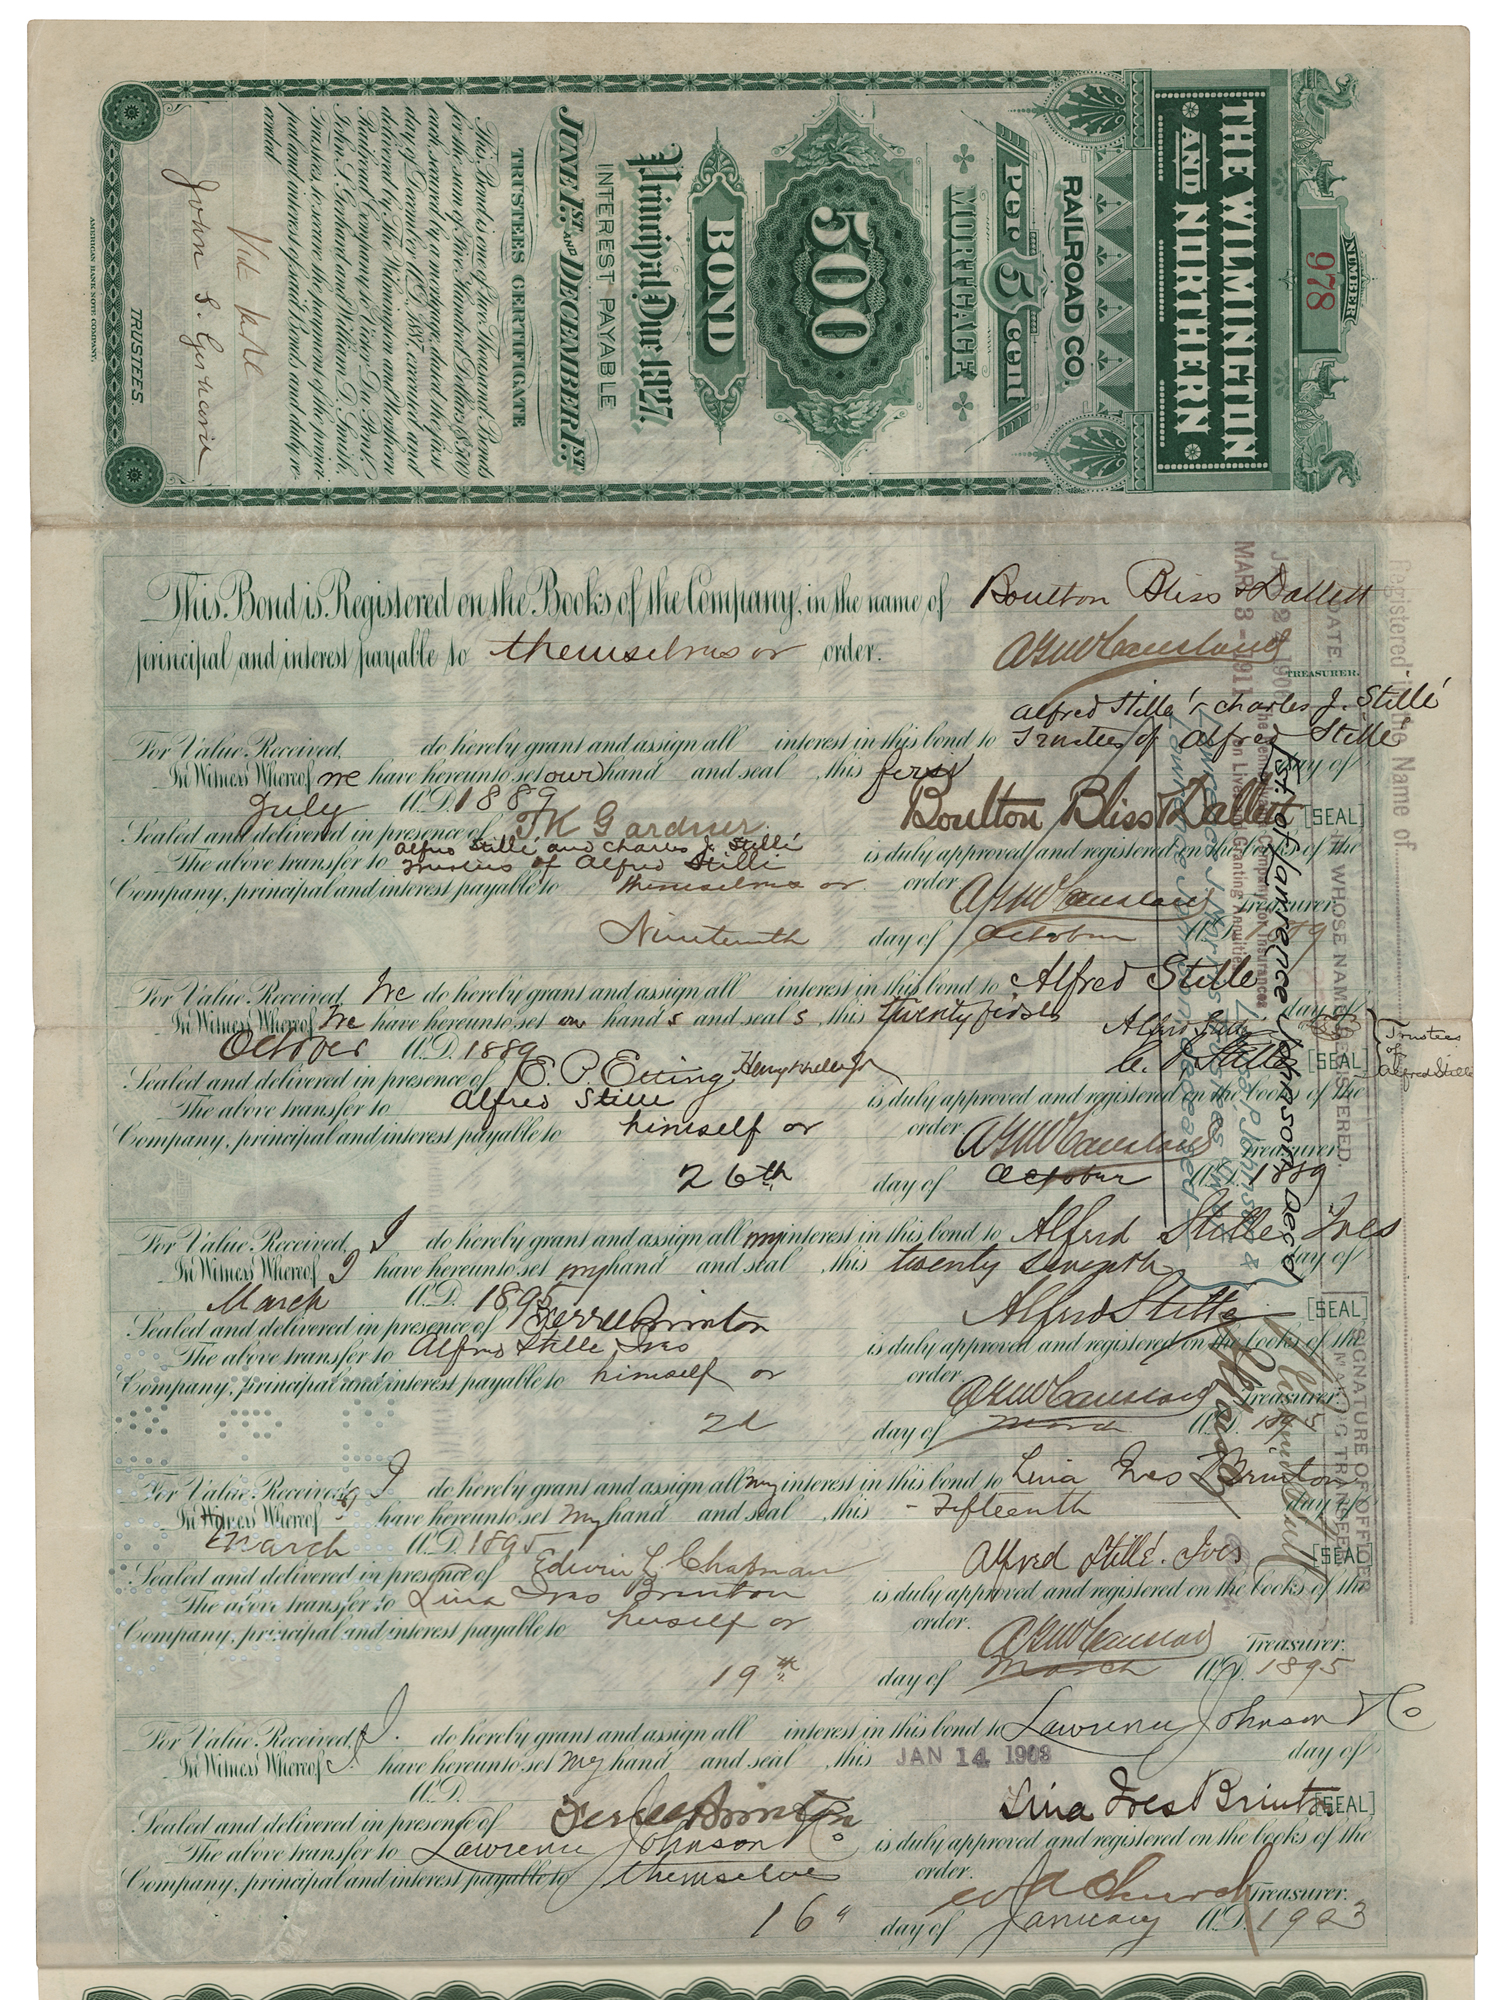 NUMBER
978
THE WILMINGTON
AND NORTHERN
RAILROAD CO.
Per 5 cent
MORTGAGE
500
BOND
Principal Due 1927.
INTEREST PAYABLE
JUNE 1ST AND DECEMBER 1ST
TRUSTEES CERTIFICATE
This Bond is one of Two Thousand Bonds
for the sum of Five Hundred Dollars ($500)
each secured by a mortgage, dated the first
day of December A.D. 1887, executed and
delivered by The Wilmington and Northern
Railroad Company to Victor Du Pont,
John S. Gerhard and William D. Smith,
Trustees, to secure the payment of the principal
and interest of said Bonds and duly recorded
John S. Gerhard
TRUSTEES.
AMERICAN BANK NOTE COMPANY.
This Bond is Registered on the Books of the Company, in the name of Boulton Bliss & Dallett
principal and interest payable to themselves or order.
TREASURER.
Alfred Stillé & Charles J. Stillé
For Value Received, do hereby grant and assign all interest in this bond to Trustees of Alfred Stillé
In Witness Whereof we have hereunto set our hand and seal, this first day of
July A.D. 1889
Sealed and delivered in presence of T K Gardner Boulton Bliss & Dallett [SEAL]
Alfred Stillé and Charles J. Stillé
The above transfer to Trustees of Alfred Stillé is duly approved and registered on the books of the
Company, principal and interest payable to themselves or order Treasurer.
Nineteenth day of October A.D. 1889
For Value Received, We do hereby grant and assign all interest in this bond to Alfred Stillé
In Witness Whereof We have hereunto set our hands and seals, this twenty first day of
October A.D. 1889
Sealed and delivered in presence of E. P. Etting [SEAL] Trustees of Alfred Stillé
The above transfer to Alfred Stille is duly approved and registered on the books of the
Company, principal and interest payable to himself or order Treasurer.
26th day of October A.D. 1889
For Value Received, I do hereby grant and assign all my interest in this bond to Alfred Stille Ives
In Witness Whereof I have hereunto set my hand and seal, this twenty seventh day of
March A.D. 1895
Sealed and delivered in presence of Alfred Stille [SEAL]
The above transfer to Alfred Stille Ives is duly approved and registered on the books of the
Company, principal and interest payable to himself or order Treasurer.
2d day of March A.D. 1895
For Value Received, I do hereby grant and assign all my interest in this bond to Lina Ives Brinton
In Witness Whereof I have hereunto set my hand and seal, this Fifteenth day of
March A.D. 1895
Sealed and delivered in presence of Edwin L. Chapman Alfred Stillé Ives [SEAL]
The above transfer to Lina Ives Brinton is duly approved and registered on the books of the
Company, principal and interest payable to herself or order. Treasurer.
19th day of March A.D. 1895
For Value Received, I do hereby grant and assign all interest in this bond to Lawrence Johnson & Co
In Witness Whereof I have hereunto set my hand and seal, this JAN 14 1903 day of
A.D.
Sealed and delivered in presence of Lina Ives Brinton [SEAL]
The above transfer to Lawrence Johnson & Co is duly approved and registered on the books of the
Company, principal and interest payable to themselves order. Treasurer.
16 day of January A.D. 1903
Registered in the Name of
DATE.
IN WHOSE NAME REGISTERED.
SIGNATURE OF OFFICER
MAKING TRANSFER
MAR 3 - 1911
Est. of Lawrence Johnson Decd